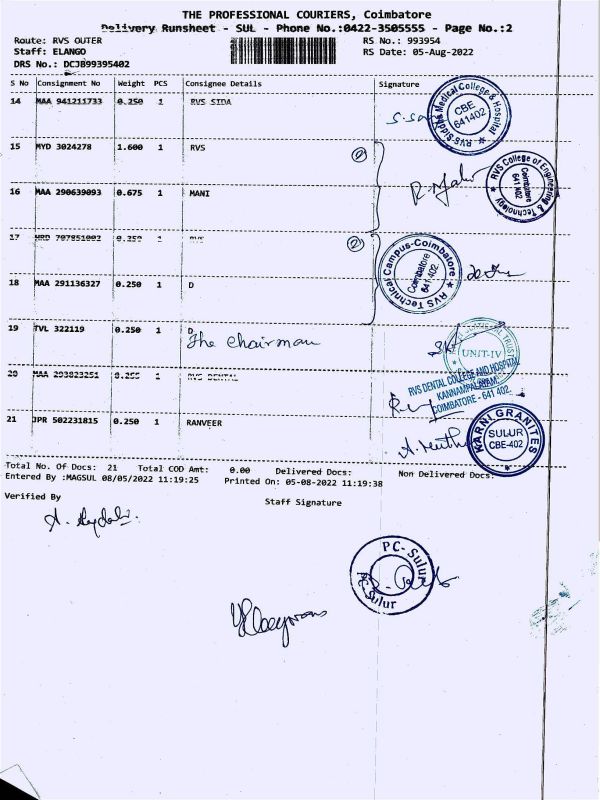 THE PROFESSIONAL COURIERS, Coimbatore
Delivery Runsheet - SUL - Phone No.:0422-3505555 - Page No.:2
Route: RVS OUTER RS No.: 993954
Staff: ELANGO RS Date: 05-Aug-2022
DRS No.: DCJB99395402
S No Consignment No Weight PCS Consignee Details Signature
14 MAA 941211733 0.250 1 RVS SIDA
RVS Siddha Medical College & Hospital
CBE
641402
15 MYD 3024278 1.600 1 RVS
RVS College of Engineering & Technology
Coimbatore
641 402
16 MAA 290639093 0.675 1 MANI
17 MRD 707851002 0.250 1 RVS
RVS Technical Campus-Coimbatore
Coimbatore
641 402
18 MAA 291136327 0.250 1 D
19 TVL 322119 0.250 1 D
The Chairman
UNIT-IV
20 MAA 293823251 0.255 1 RVS DENTAL
RVS DENTAL COLLEGE AND HOSPITAL
KANNAMPALAYAM,
COIMBATORE - 641 402.
21 JPR 502231815 0.250 1 RANVEER
KARNI GRANITES
SULUR
CBE-402
Total No. Of Docs: 21 Total COD Amt: 0.00 Delivered Docs: Non Delivered Docs:
Entered By :MAGSUL 08/05/2022 11:19:25 Printed On: 05-08-2022 11:19:38
Verified By Staff Signature
PC-Sulur
PC-Sulur